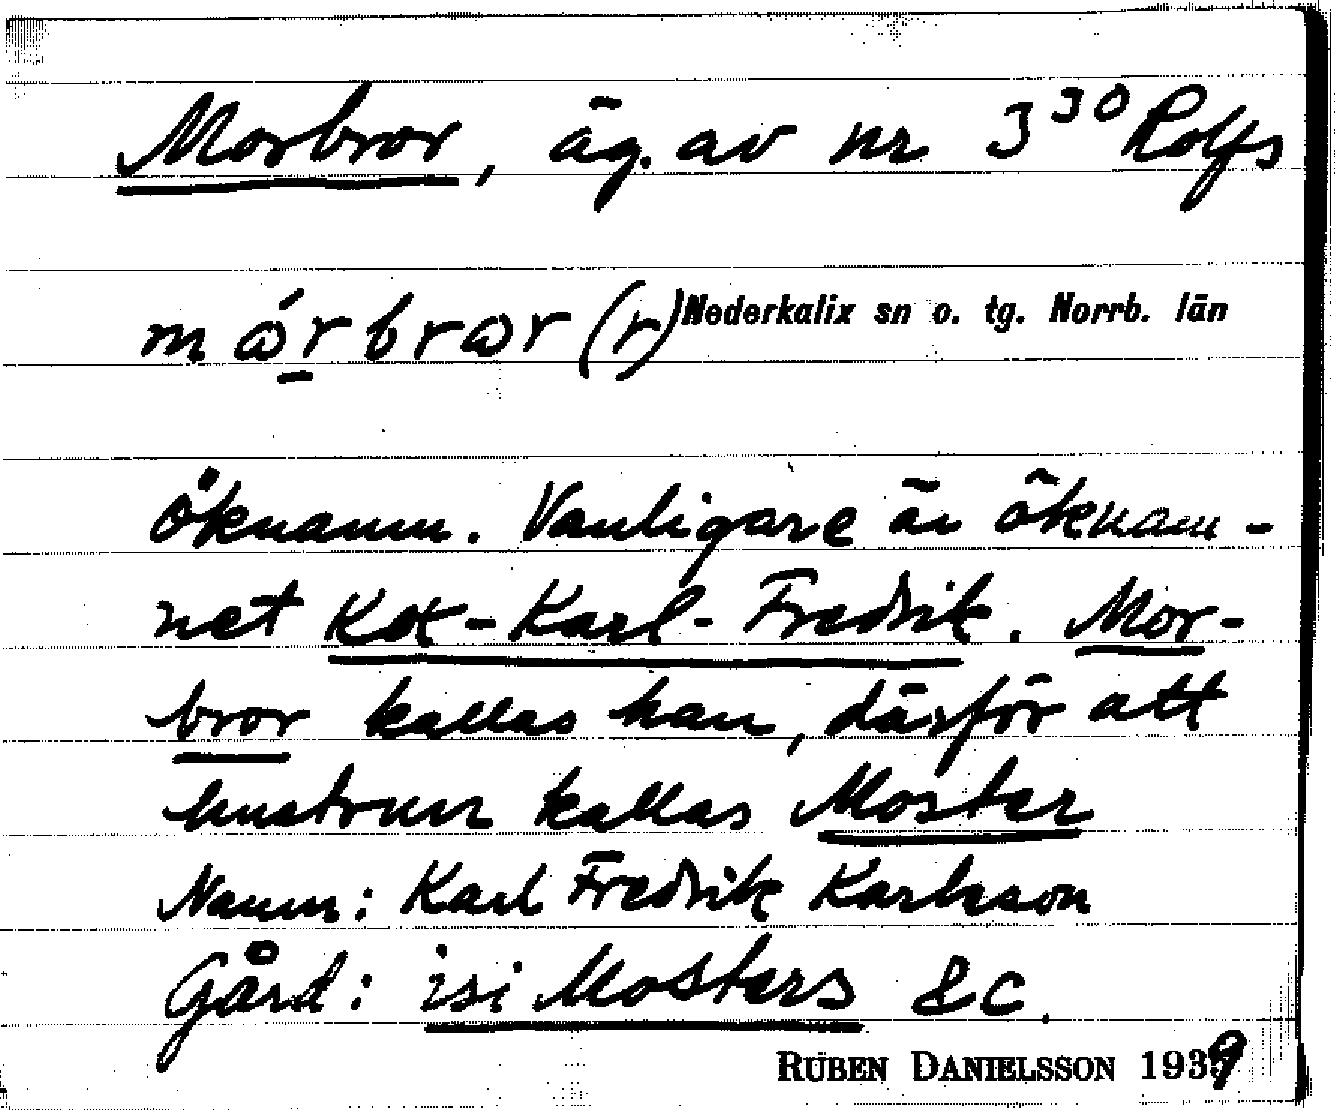 Morbror, äg. av nr 3³⁰ Rolfs
mώrbrωr(r) Nederkalix sn o. tg. Norrb. län
öknamn. Vanligare är öknam-
net Kok-Karl-Fredrik. Mor-
bror kallas han, därför att
hustrun kallas Moster
Namn: Karl Fredrik Karlsson
Gård: isi Mosters &c.
RUBEN DANIELSSON 1939